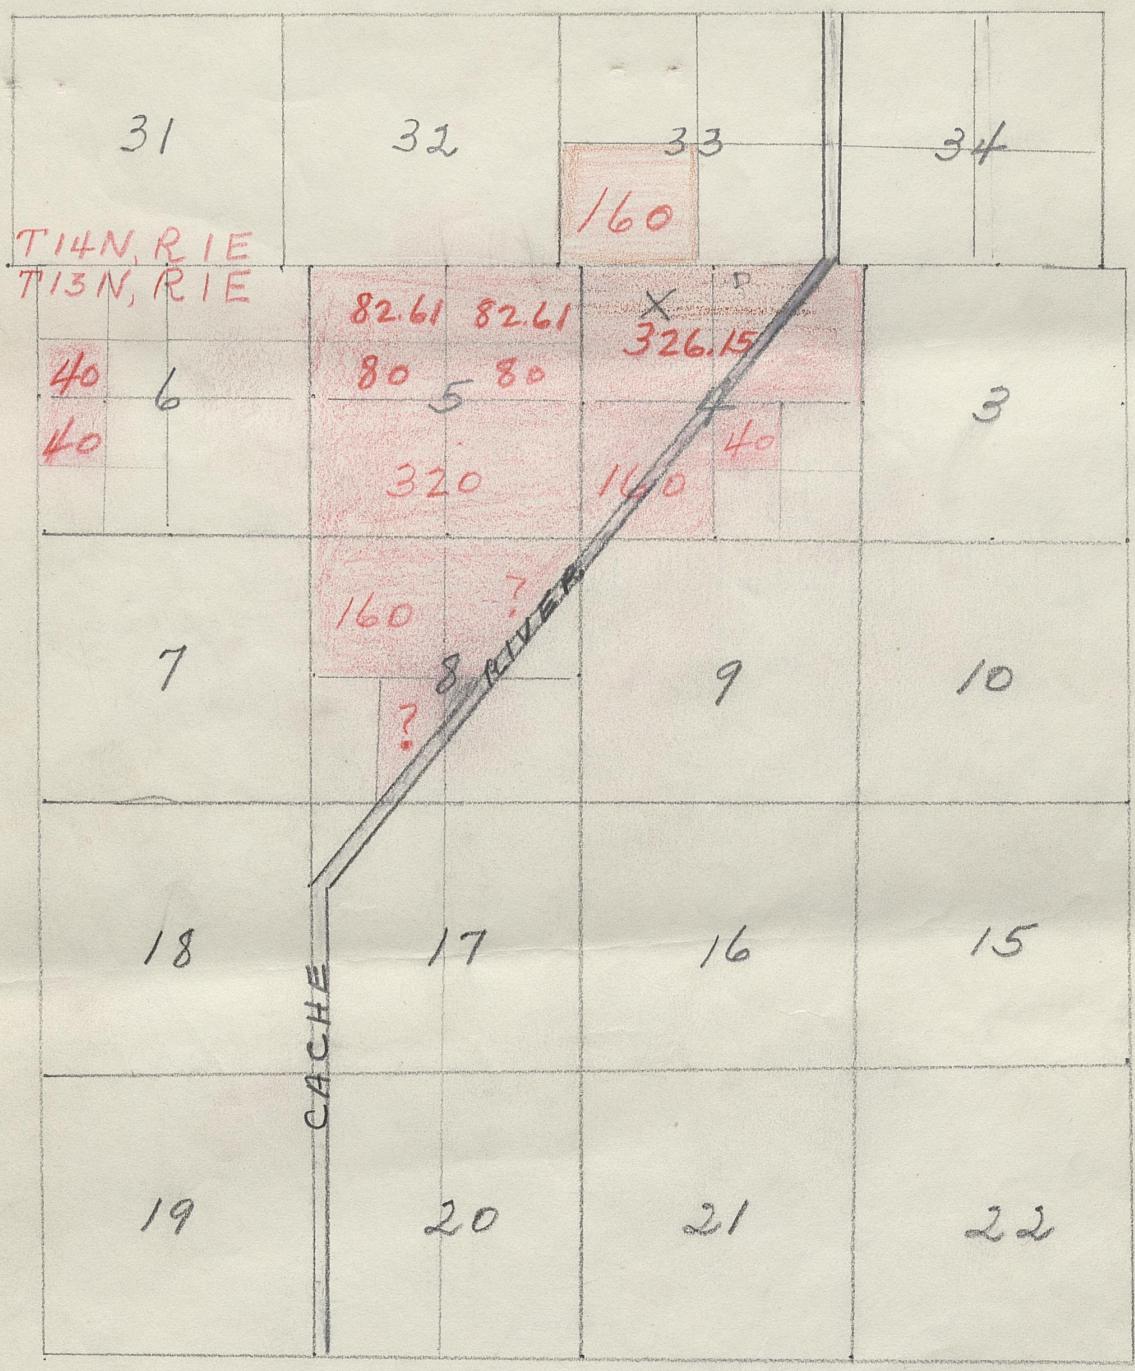 31 32 33 34
160
T14N, R1E
T13N, R1E
82.61 82.61 X D
326.15
40 6 80 5 80 4 3
40 320 160 40
160 ?
7 8 RIVER 9 10
?
18 17 16 15
CACHE
19 20 21 22